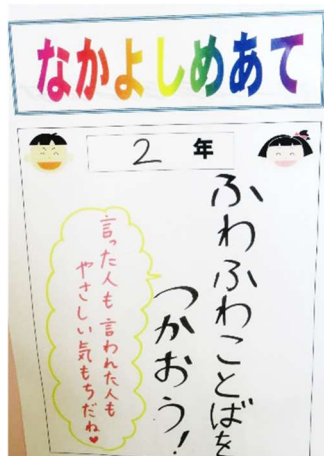 なかよしめあて
2 年
ふわふわことばを
つかおう!
言った人も言われた人も
やさしい気もちだね♥